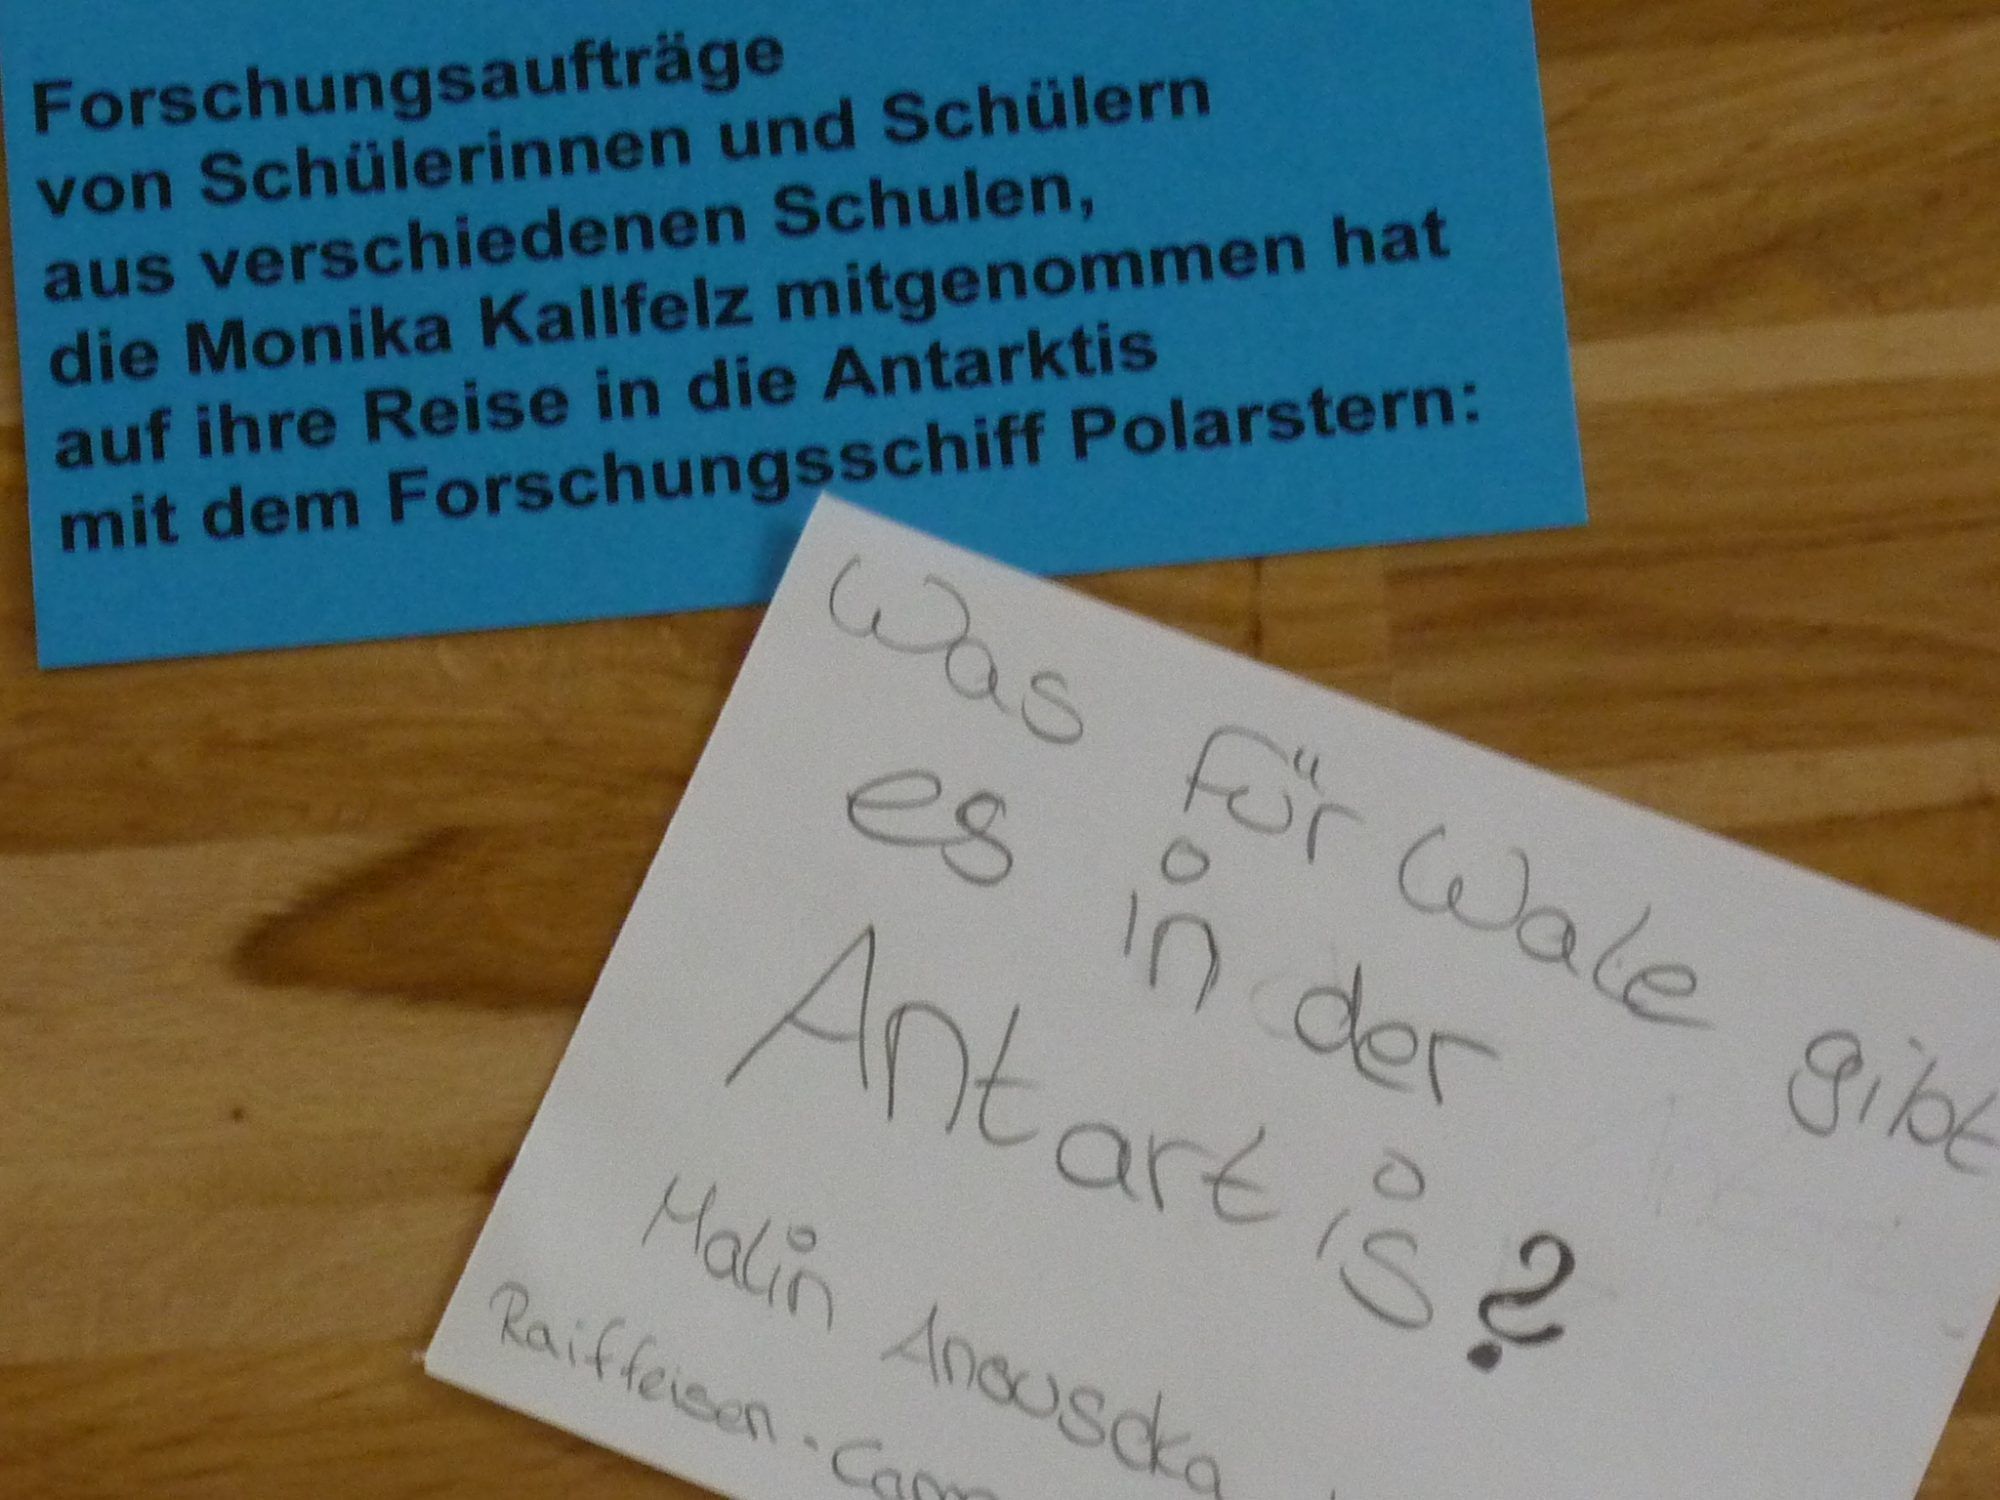 Forschungsaufträge
von Schülerinnen und Schülern
aus verschiedenen Schulen,
die Monika Kallfelz mitgenommen hat
auf ihre Reise in die Antarktis
mit dem Forschungsschiff Polarstern:
Was für Wale gibt
es in der
Antartis?
Malin Anouscka
Raiffeisen-